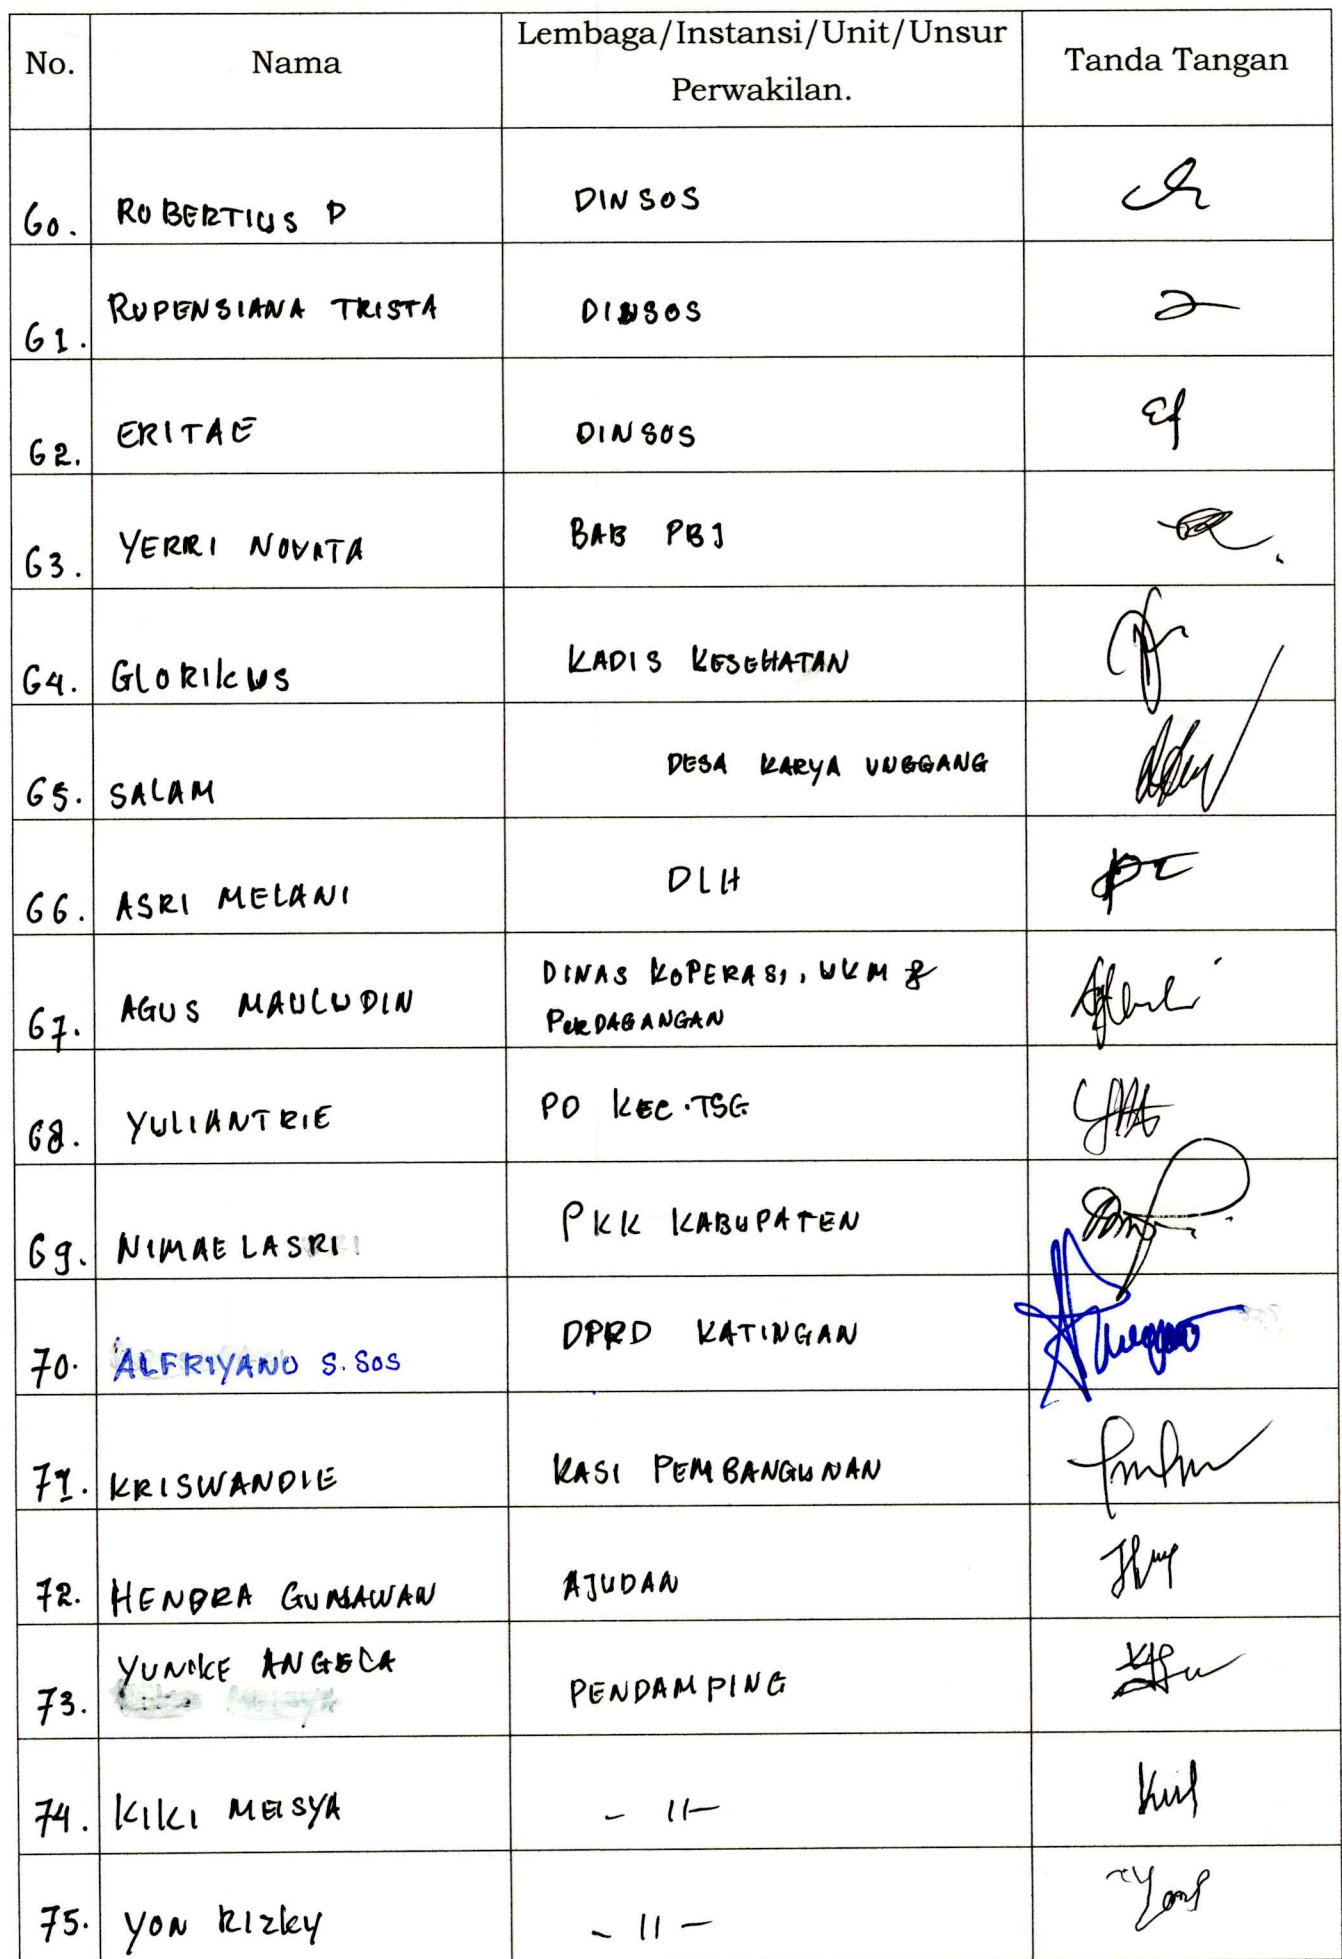 No. Nama Lembaga/Instansi/Unit/Unsur Perwakilan. Tanda Tangan
60. ROBERTIUS P DINSOS
61. RUPENSIANA TRISTA DINSOS
62. ERITAE DINSOS
63. YERRI NOVITA BAB PBJ
64. GLORIKUS KADIS KESEHATAN
65. SALAM DESA KARYA UNGGANG
66. ASRI MELANI DLH
67. AGUS MAULUDIN DINAS KOPERASI, UKM &
PERDAGANGAN
68. YULIANTRIE PO KEC.TSG
69. NIMAELASRI PKK KABUPATEN
70. ALFRIYANO S.SOS DPRD KATINGAN
71. KRISWANDIE KASI PEMBANGUNAN
72. HENDRA GUNAWAN AJUDAN
73. YUNIKE ANGELA PENDAMPING
74. KIKI MEISYA - 11 -
75. YON RIZKY - 11 -